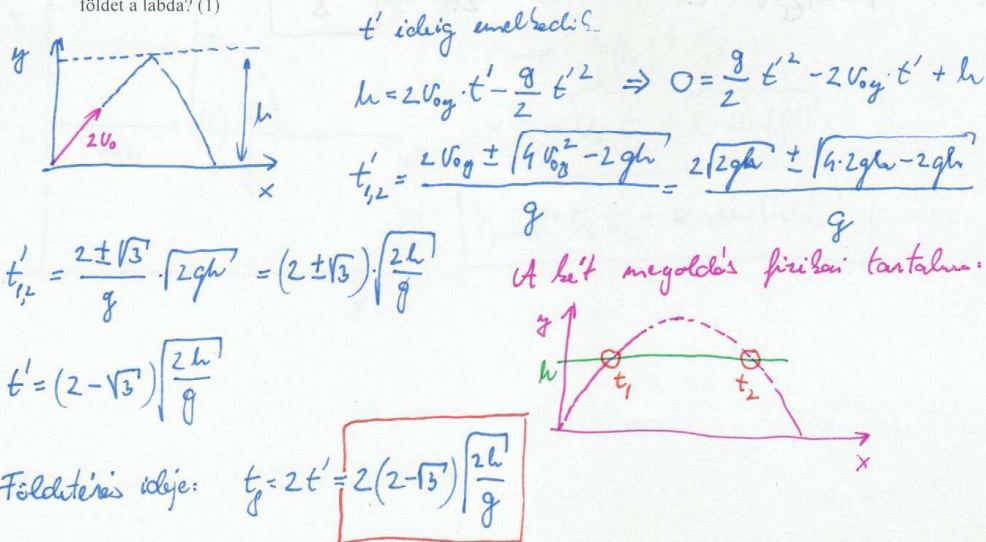 földet a labda? (1)
t' ideig emelkedik
y
2v₀
h
x
h = 2v₀y·t' - g/2 t'² ⇒ 0 = g/2 t'² - 2v₀y·t' + h
t'₁,₂ = (2v₀y ± √(4v₀y² - 2gh))/g = (2√(2gh) ± √(4·2gh - 2gh))/g
t'₁,₂ = (2±√3)/g · √(2gh) = (2±√3)·√(2h/g)
A két megoldás fizikai tartalma:
y
h
t₁
t₂
x
t' = (2-√3)√(2h/g)
Földetérés ideje: t_f = 2t' = 2(2-√3)√(2h/g)